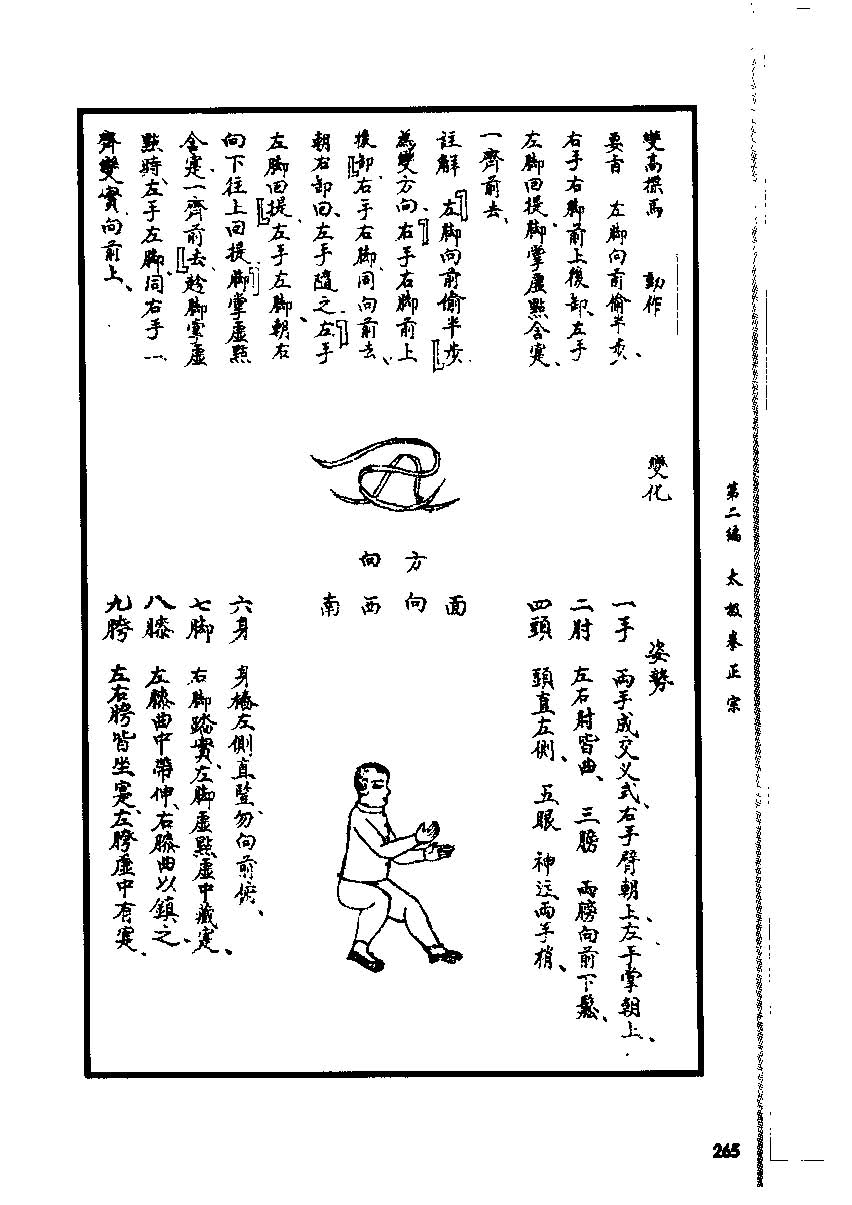 變高探馬　動作
要旨　左脚向前偷半步、
右手右脚前上後卸、左手
左脚回提、脚掌虛點含寔、
一齊前去、
註解　「左脚向前偷半步」
為變方向、「右手右脚前上
後卸」右手右脚、同向前去、
朝右卸回、左手隨之、「左手
左脚回提」左手左脚、朝右
向下往上回提、「脚掌虛點
含寔、一齊前去」脚掌虛
點時、左手左脚、同右手一
齊變實、向前上、
變化
方向
面向西南
姿勢
一手　兩手成交义式、右手臂朝上、左手掌朝上、
二肘　左右肘皆曲、三膀　兩膀向前下鬆、
四頭　頭直左側、五眼　神注兩手梢、
六身　身樁左側直豎、勿向前俯、
七脚　右脚踏實、左脚虛點、虛中藏寔、
八膝　左膝曲中帶伸、右膝曲以鎮之、
九胯　左右胯皆坐寔、左胯虛中有寔、
第二編　太極拳正宗
265